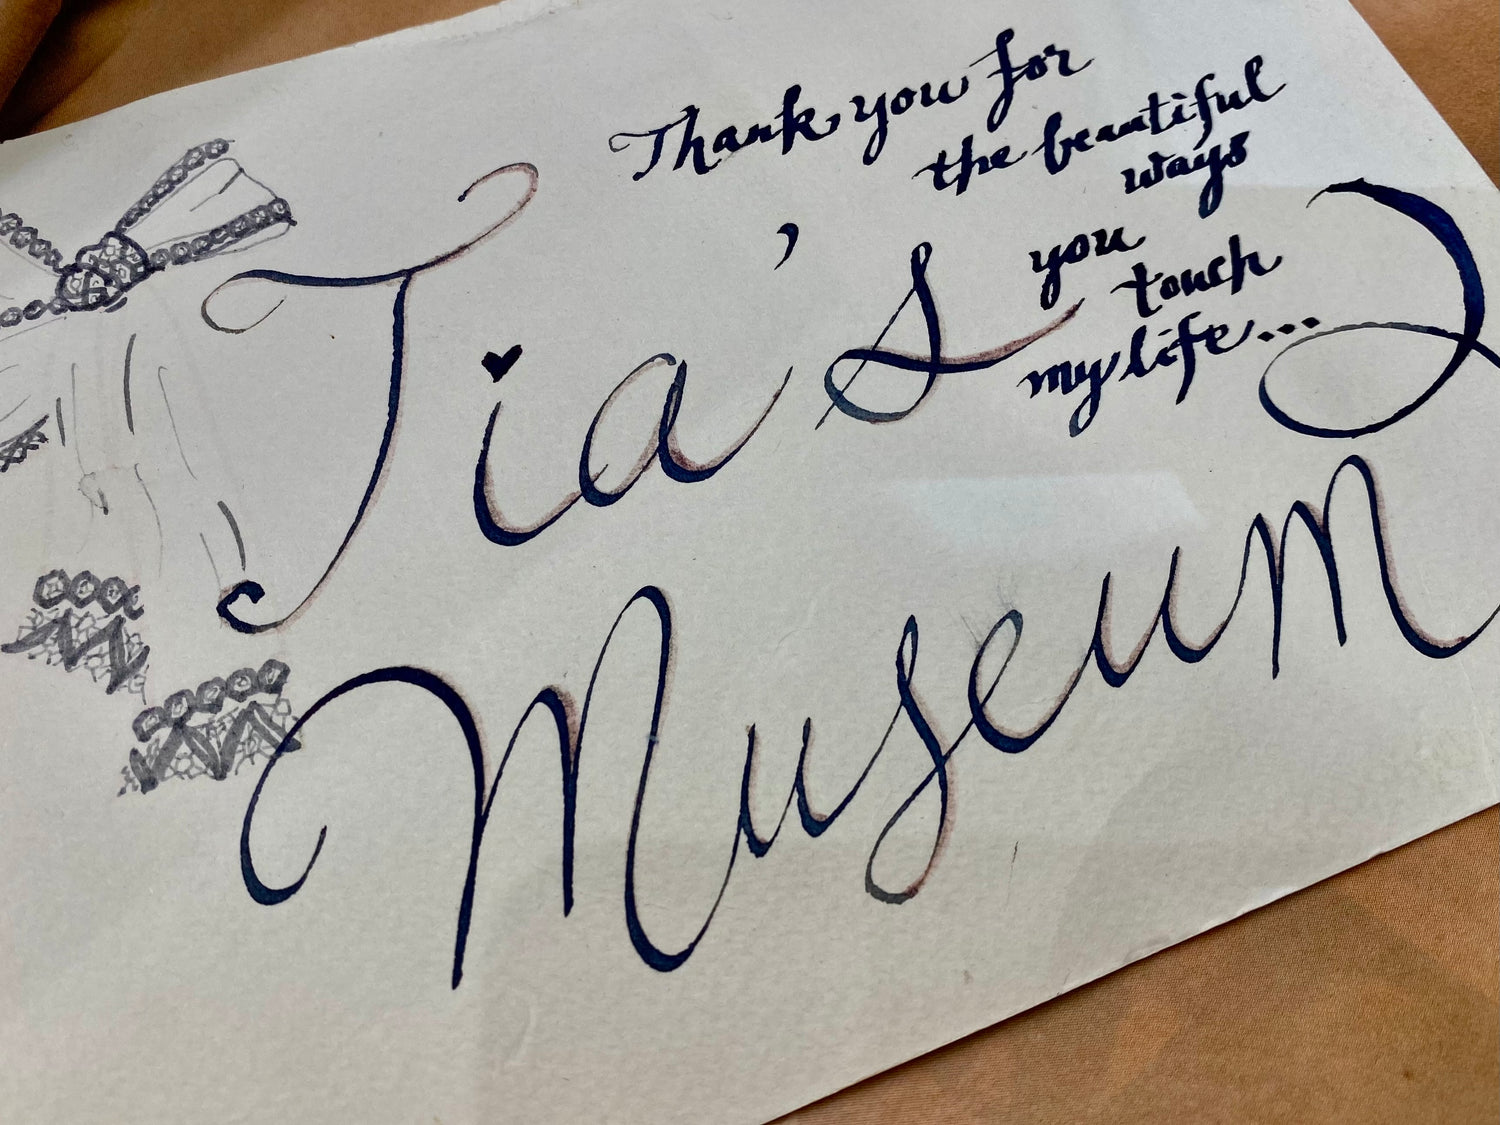 Thank you for
the beautiful
ways
you
touch
my life...
Tia's
Museum